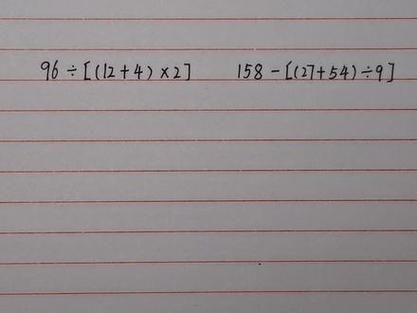 96÷[(12+4)×2] 158-[(27+54)÷9]